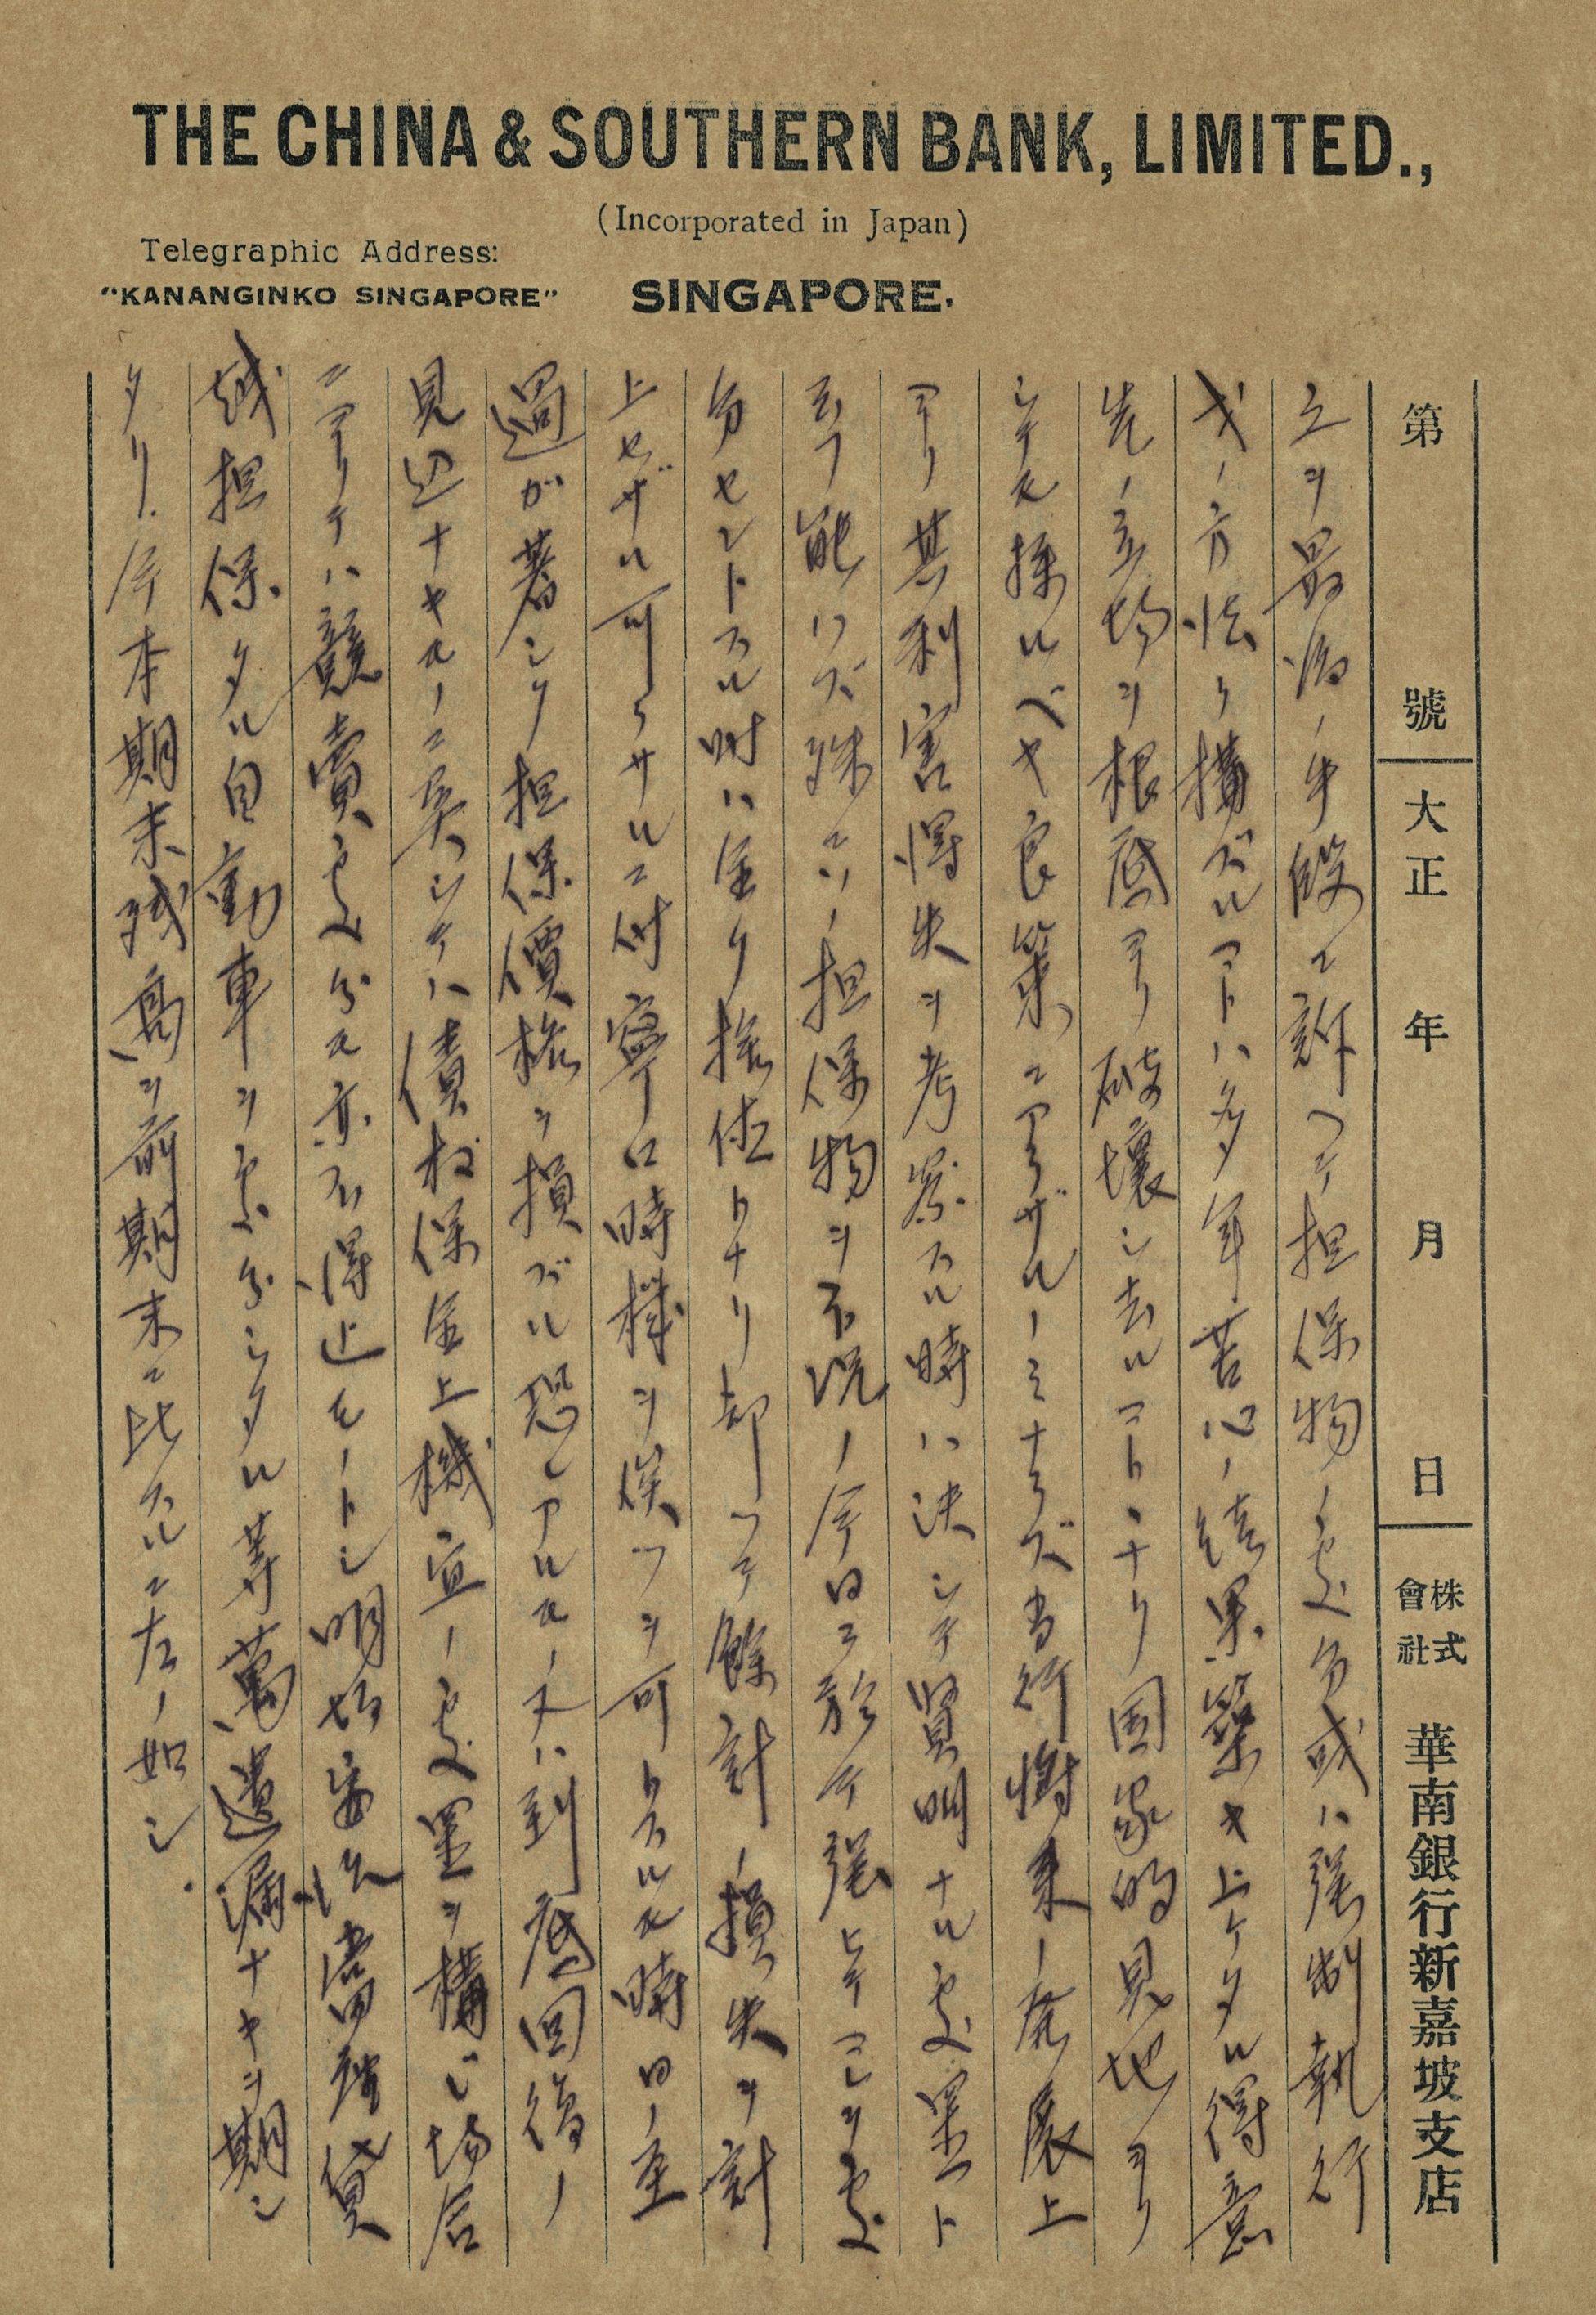 THE CHINA & SOUTHERN BANK, LIMITED.,
(Incorporated in Japan)
Telegraphic Address:
"KANANGINKO SINGAPORE"
SINGAPORE.
第 號 大正 年 月 日 株式會社 華南銀行新嘉坡支店
立ヲ最後ノ手段ニ訴ヘテ担保物ノ処分或ハ強制執行
ノ方法ヲ構ズルコトハ多年苦心ノ結果築キ上ケタル得意
先ノ立場ヲ根底ヨリ破壊シ去ルコトトナリ国家的見地ヨリ
シテモ採ルベキ良策ニアラザルノミナラズ当行将来ノ発展上
ヨリ其利害得失ヲ考察スル時ハ決シテ賢明ナル処置ト
云フ能ハズ殊ニソノ担保物ヲ不況ノ今日ニ於テ強ヒテコレヲ処
分セントスル時ハ全ク捨値トナリ却ツテ余計ノ損失ヲ計
上セザル可ラサルニ付寧ロ時機ヲ俟ツヲ可トスルモ時日ノ至
過ガ著シク担保價格ヲ損ズル恐レアルモノ又ハ到底回復ノ
見込ナキモノニ対シテハ債権保全上機宜ノ処置ヲ構ジ場合
ニヨリテハ競賣処分モ亦不得止モノトシ當座貸
越担保タル自動車ヲ処分シタル等萬遺漏ナキヲ期シ
タリ. 今本期末残高ヲ前期末ニ比スルニ左ノ如シ.